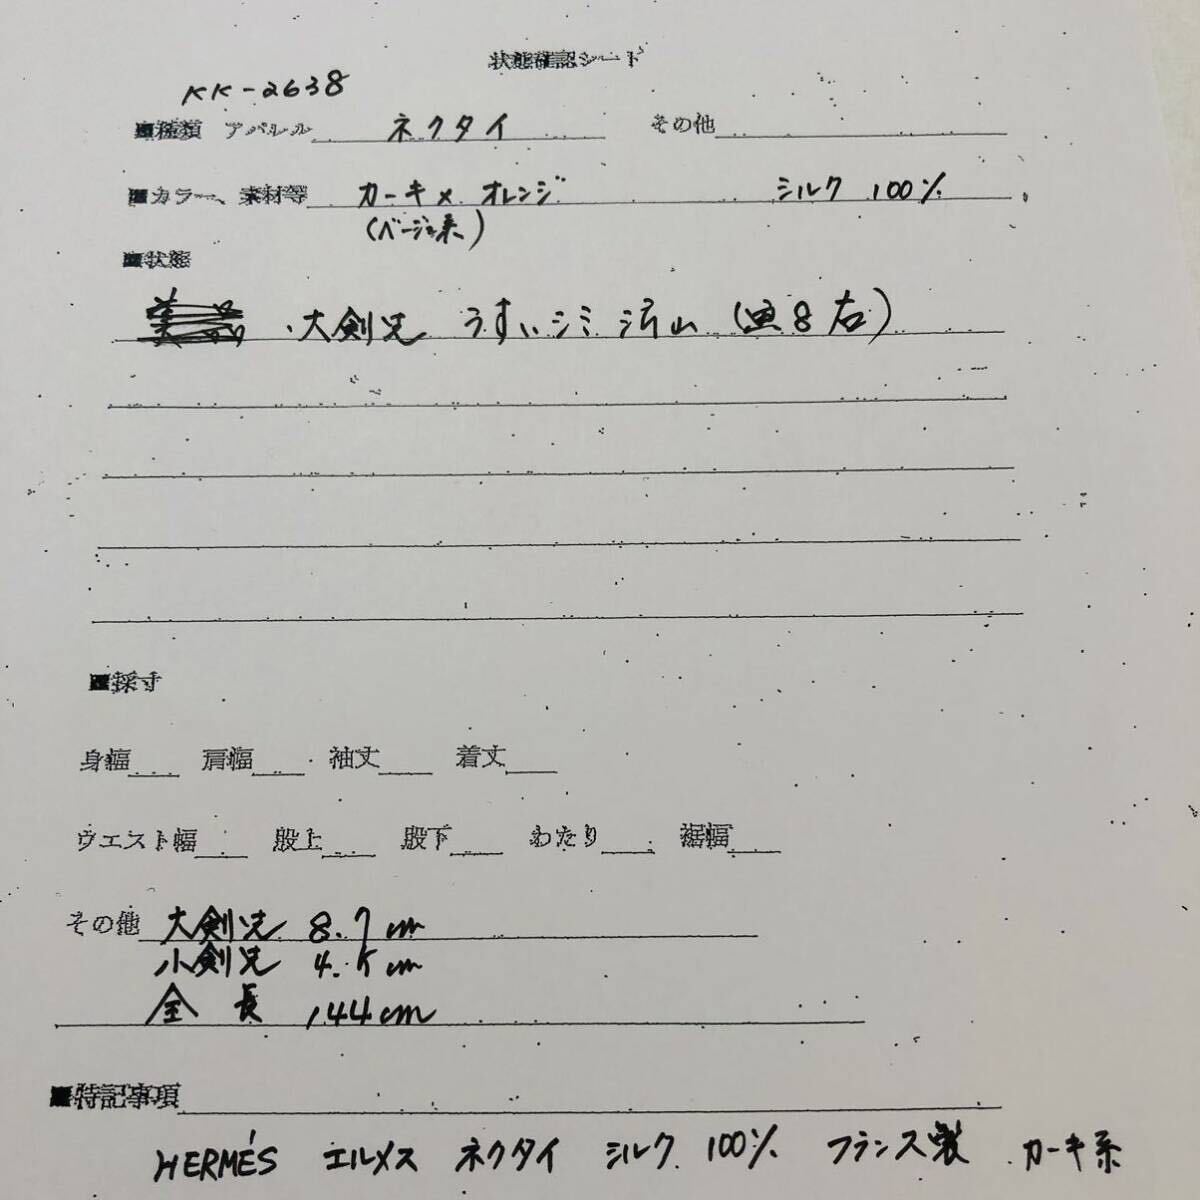 状態確認シート
KK-2638
■種類 アパレル ネクタイ その他
■カラー、素材等 カーキ× オレンジ シルク 100%
(ベージュ系)
■状態
・大剣先 うすいシミ 沢山 (画8右)
■採寸
身幅 肩幅 袖丈 着丈
ウエスト幅 股上 股下 わたり 裾幅
その他 大剣先 8.7cm
小剣先 4.5cm
全長 144cm
■特記事項
HERMÈS エルメス ネクタイ シルク 100% フランス製 カーキ系